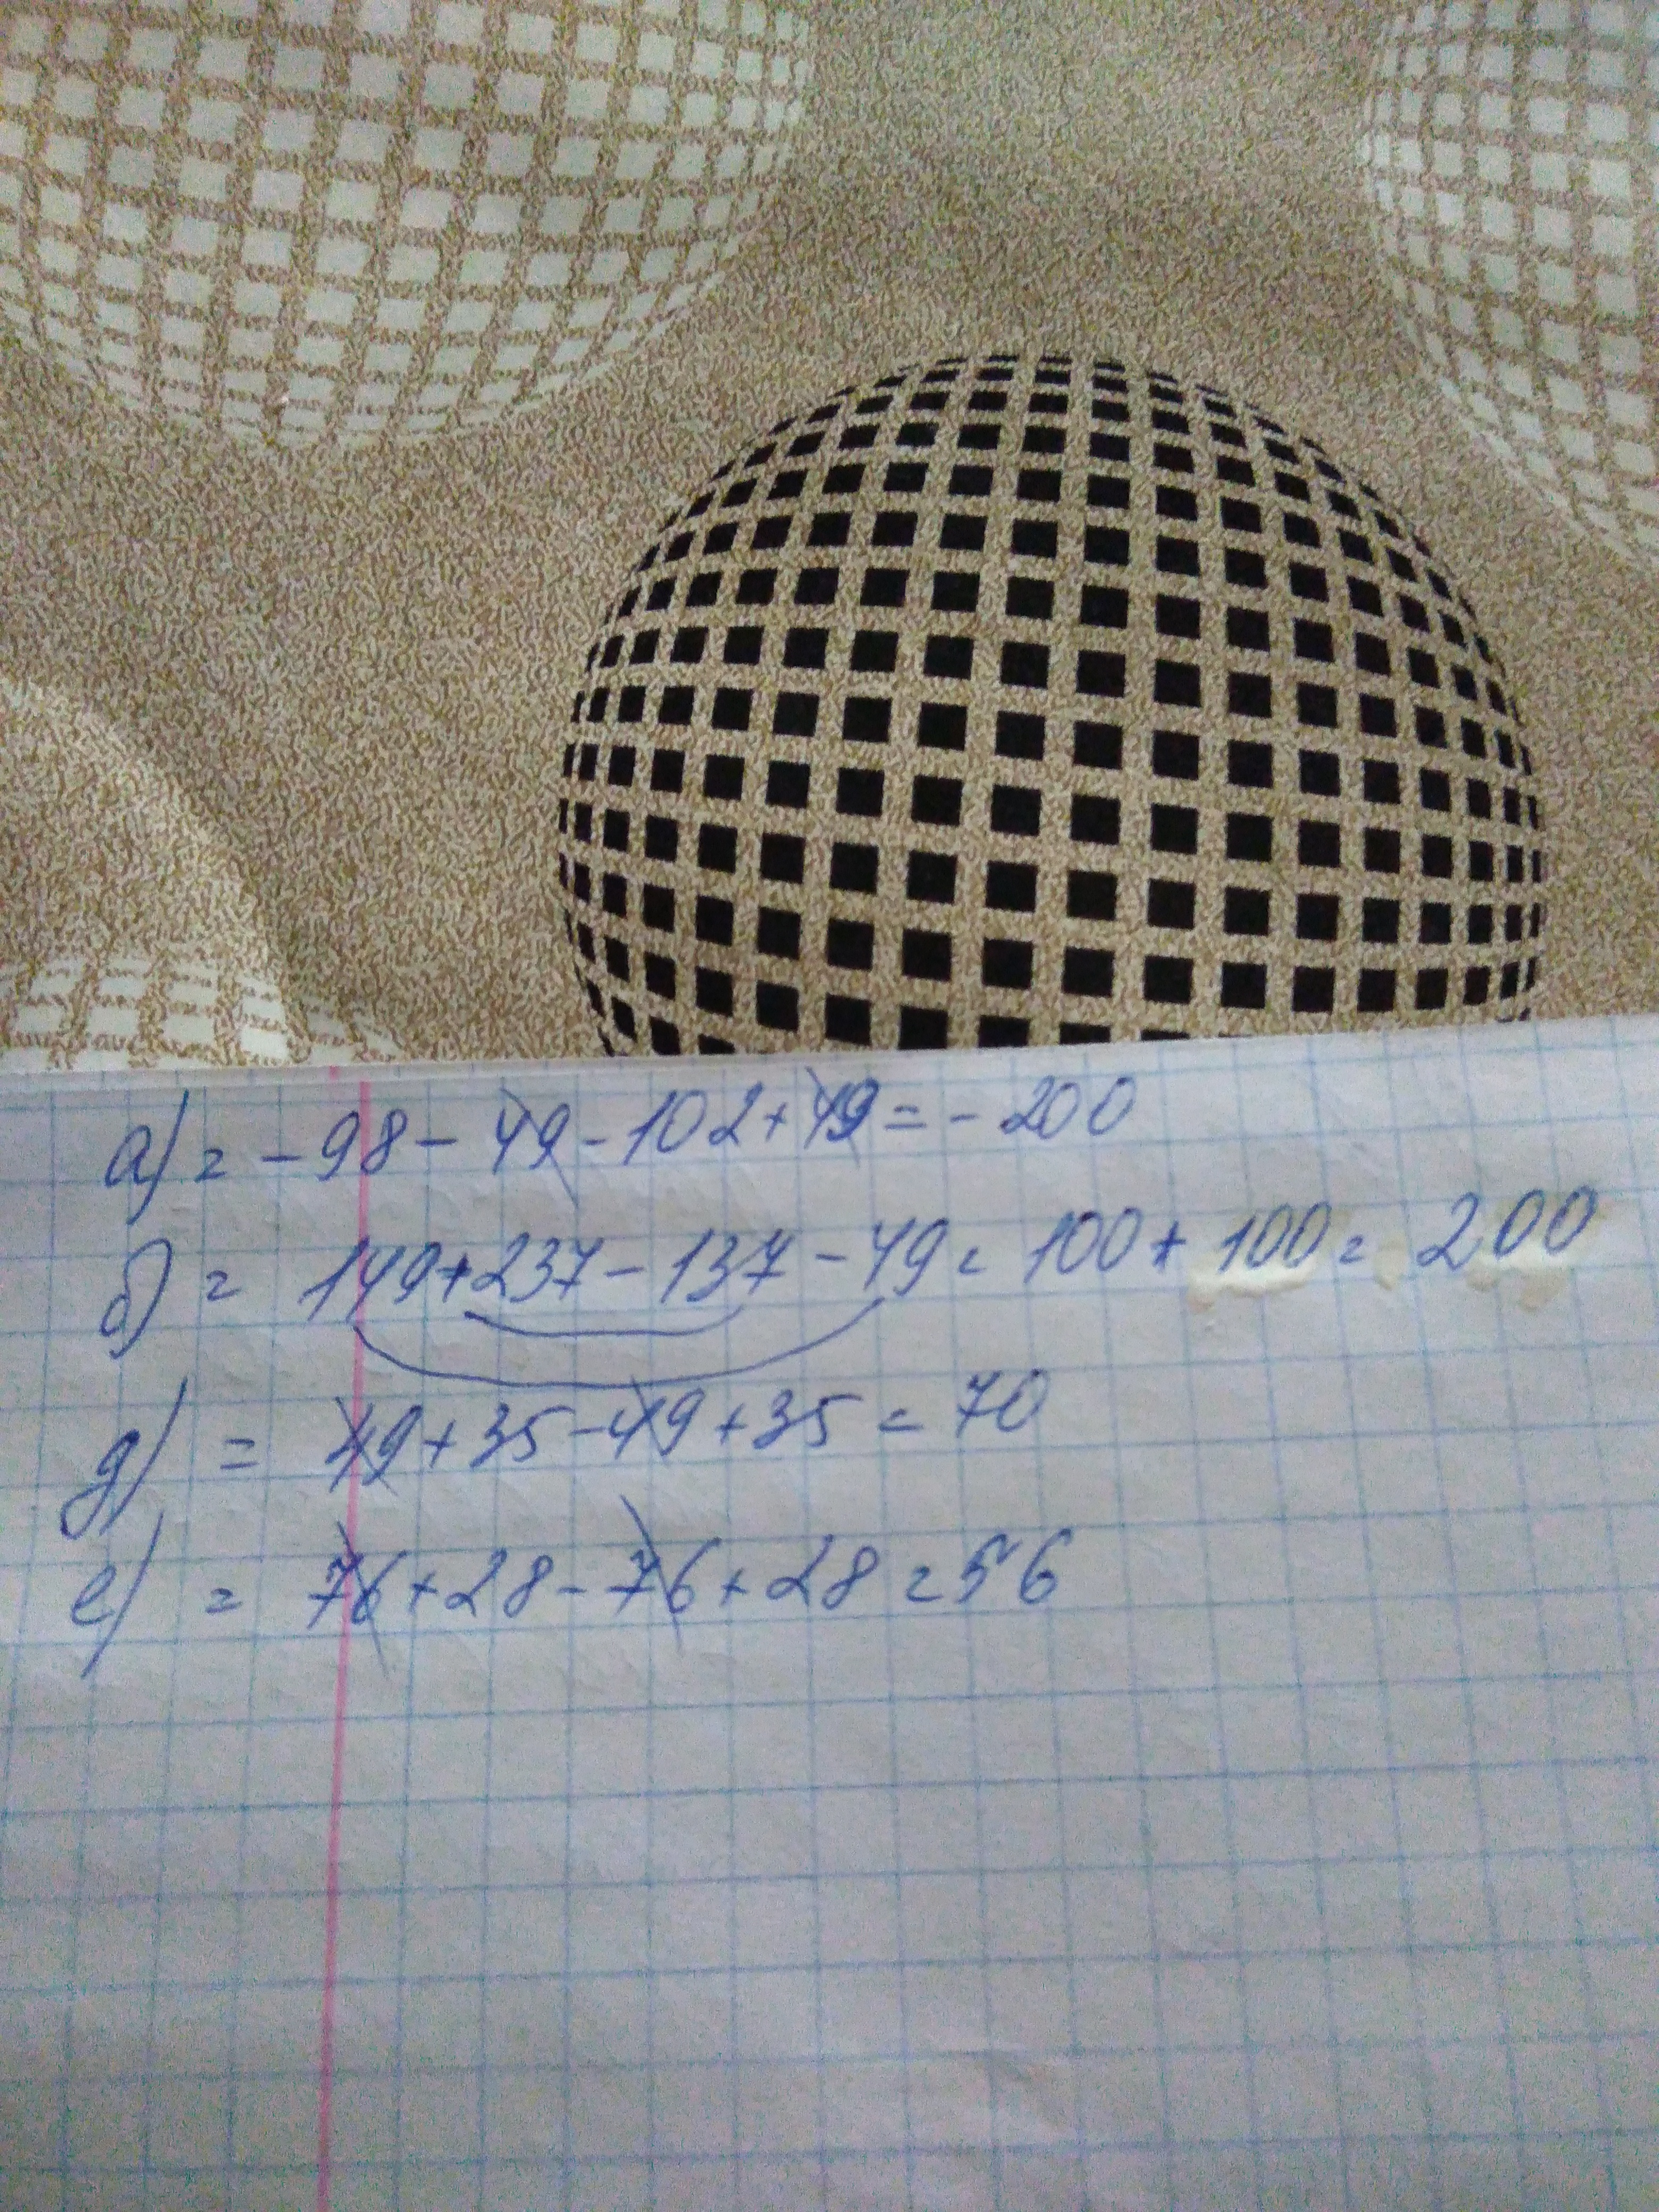 а) = -98 - 49 - 102 + 49 = -200
б) = 149 + 237 - 137 - 49 = 100 + 100 = 200
д) = 49 + 35 - 49 + 35 = 70
е) = 76 + 28 - 76 + 28 = 56